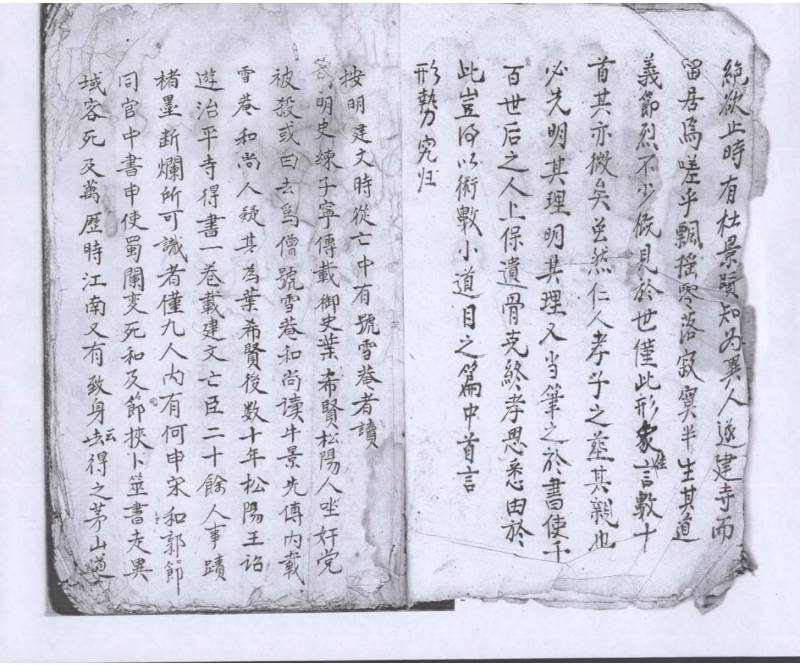 絶欲止時有杜景賢知为異人遂建寺而
留居焉嗟乎飄搖零落寂寞半生其道
義節烈不少概見於世僅此形家言数十
首其亦微矣曽然仁人孝子之塟其親也
必先明其理明其理又当筆之於書使千
百世后之人上保遺骨克終孝思悉由於
此豈得以術數小道目之篇中首言
形勢究归
按明建文時從亡中有號雪菴者讀
明史練子寧傳載御史葉希賢松陽人坐奸党
被殺或曰去爲僧號雪菴和尚讀牛景先傳内載
雪菴和尚人疑其為葉希賢後数十年松陽王詔
遊治平寺得書一卷載建文亡臣二十餘人事蹟
楮墨断爛所可識者僅九人内有何申宋和郭節
同官中書申使蜀聞变死和及節挾卜筮書走異
域客死及萬歷時江南又有致身云得之茅山道